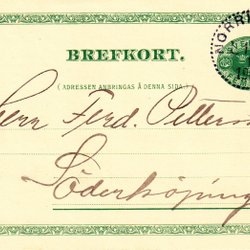 NORRT
BREFKORT.
(ADRESSEN ANBRINGAS Å DENNA SIDA.)
Herr Ferd. Petterss
Söderköping